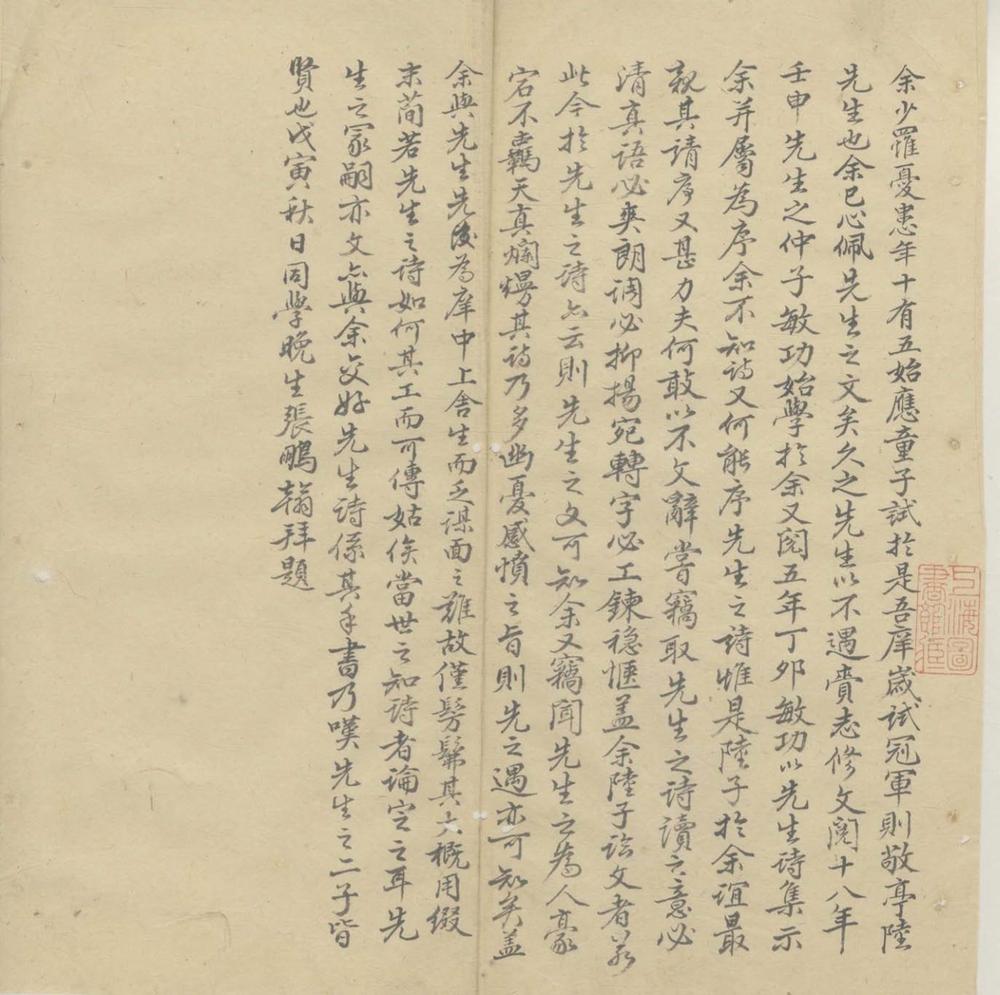 余少罹憂患年十有五始應童子試於是吾庠歲試冠軍則敬亭陸
先生也余已心佩先生之文矣久之先生以不遇賫志修文閱十八年
壬申先生之仲子敏功始學於余又閱五年丁夘敏功以先生詩集示
余并屬為序余不知詩又何能序先生之詩惟是陸子於余誼最
親其請序又甚力夫何敢以不文辭嘗竊取先生之詩讀之意必
清真語必爽朗調必抑揚宛轉字必工鍊穩愜盖余陸子論文者若
此今於先生之詩亦云則先生之文可知余又竊聞先生之為人豪
宕不羈天真爛熳其詩乃多幽憂感憤之旨則先之遇亦可知矣盖
余與先生先後為庠中上舍生而乏謀面之雅故僅髣髴其大概用綴
末簡若先生之詩如何其工而可傳姑俟當世之知詩者論定之耳先
生之冢嗣亦文亦與余交好先生詩係其手書乃嘆先生之二子皆
賢也戊寅秋日同學晚生張鵬翰拜題
上海圖
書館藏